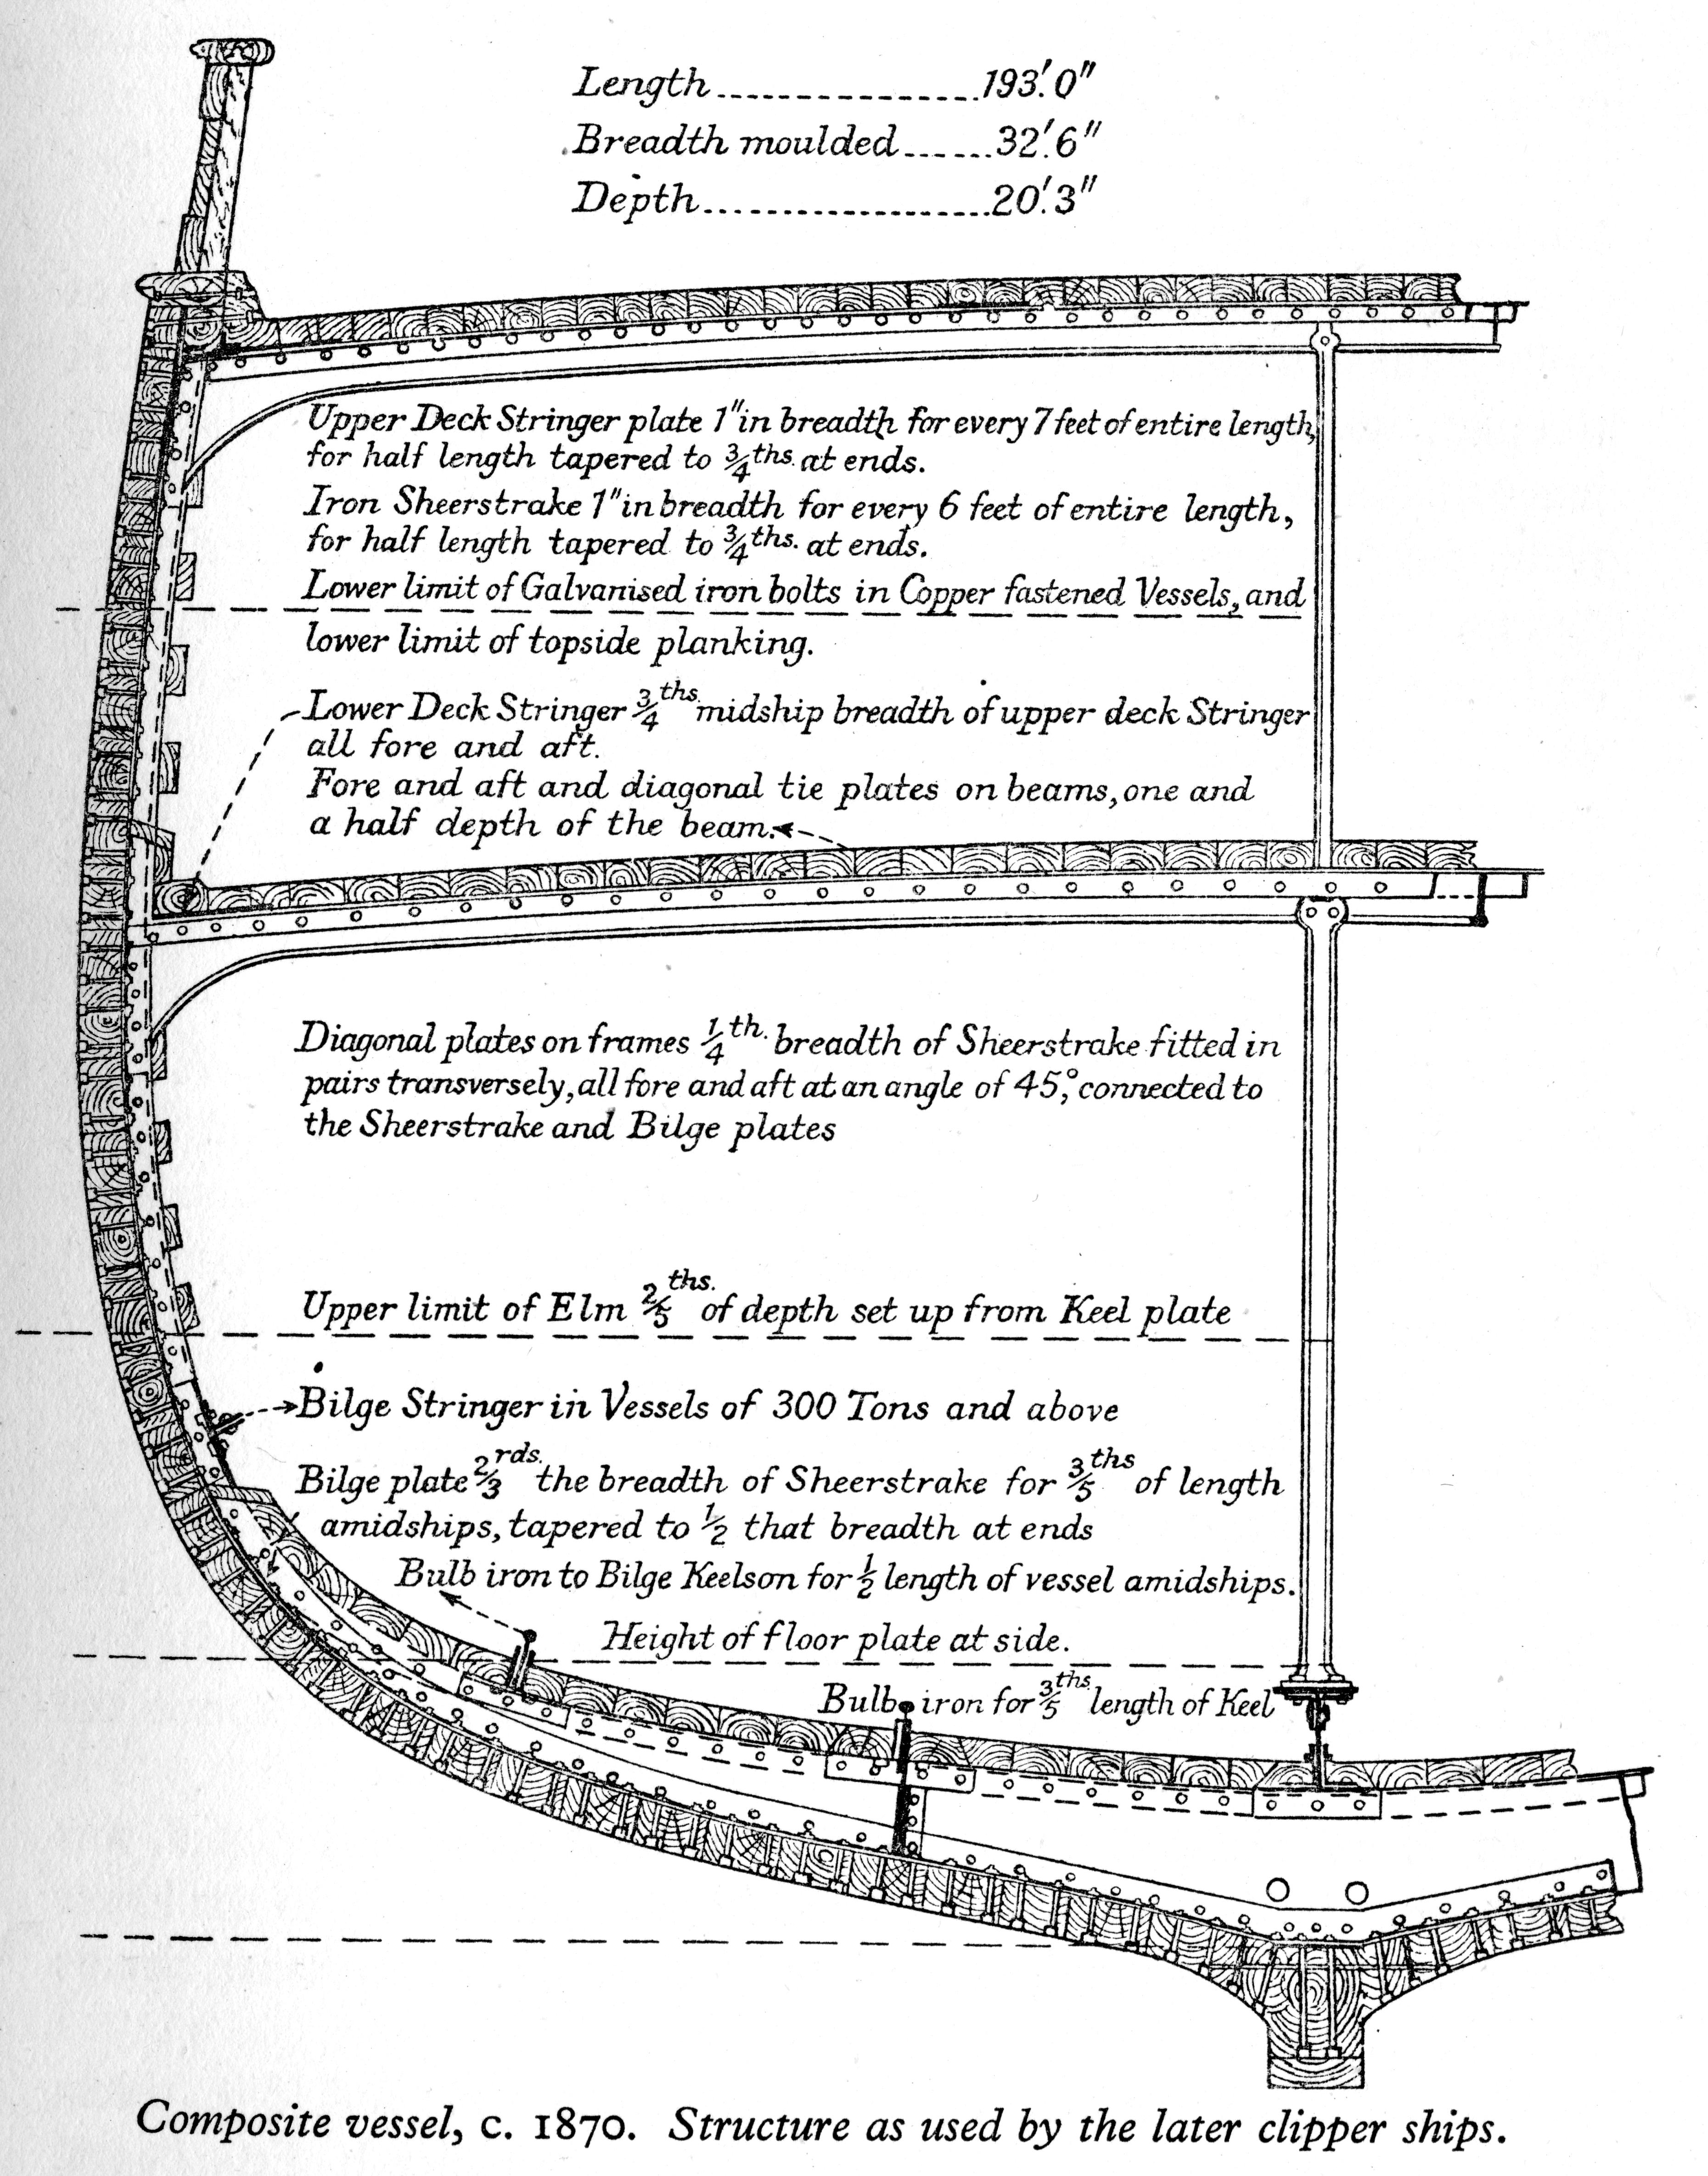 Length................193'.0"
Breadth moulded......32'.6"
Depth..................20'.3"
Upper Deck Stringer plate 1" in breadth for every 7 feet of entire length,
for half length tapered to 3/4ths. at ends.
Iron Sheerstrake 1" in breadth for every 6 feet of entire length,
for half length tapered to 3/4ths. at ends.
Lower limit of Galvanised iron bolts in Copper fastened Vessels, and
lower limit of topside planking.
Lower Deck Stringer 3/4ths. midship breadth of upper deck Stringer
all fore and aft.
Fore and aft and diagonal tie plates on beams, one and
a half depth of the beam.
Diagonal plates on frames 1/4th. breadth of Sheerstrake fitted in
pairs transversely, all fore and aft at an angle of 45°, connected to
the Sheerstrake and Bilge plates
Upper limit of Elm 2/5ths. of depth set up from Keel plate
Bilge Stringer in Vessels of 300 Tons and above
Bilge plate 2/3rds. the breadth of Sheerstrake for 3/5ths of length
amidships, tapered to 1/2 that breadth at ends
Bulb iron to Bilge Keelson for 1/2 length of vessel amidships.
Height of floor plate at side.
Bulb iron for 3/5ths length of Keel
Composite vessel, c. 1870. Structure as used by the later clipper ships.